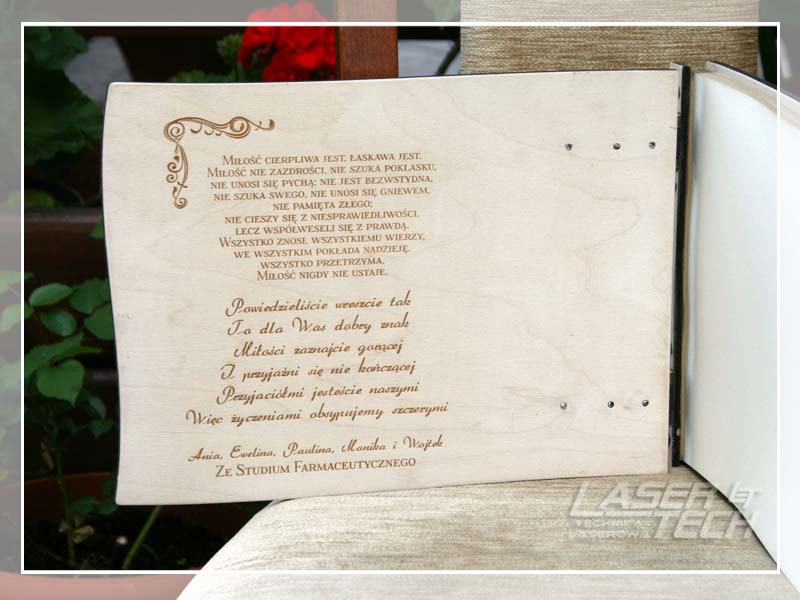 Miłość cierpliwa jest, łaskawa jest.
Miłość nie zazdrości, nie szuka poklasku,
nie unosi się pychą; nie jest bezwstydna,
nie szuka swego, nie unosi się gniewem,
nie pamięta złego;
nie cieszy się z niesprawiedliwości,
lecz współweseli się z prawdą.
Wszystko znosi, wszystkiemu wierzy,
we wszystkim pokłada nadzieję,
wszystko przetrzyma.
Miłość nigdy nie ustaje.
Powiedzieliście wreszcie tak
To dla Was dobry znak
Miłości zaznajcie gorącej
I przyjaźni się nie kończącej
Przyjaciółmi jesteście naszymi
Więc życzeniami obsypujemy szczerymi
Ania, Ewelina, Paulina, Monika i Wojtek
Ze Studium Farmaceutycznego
LASER LT
TECHNIKA
LASEROWA
TECH